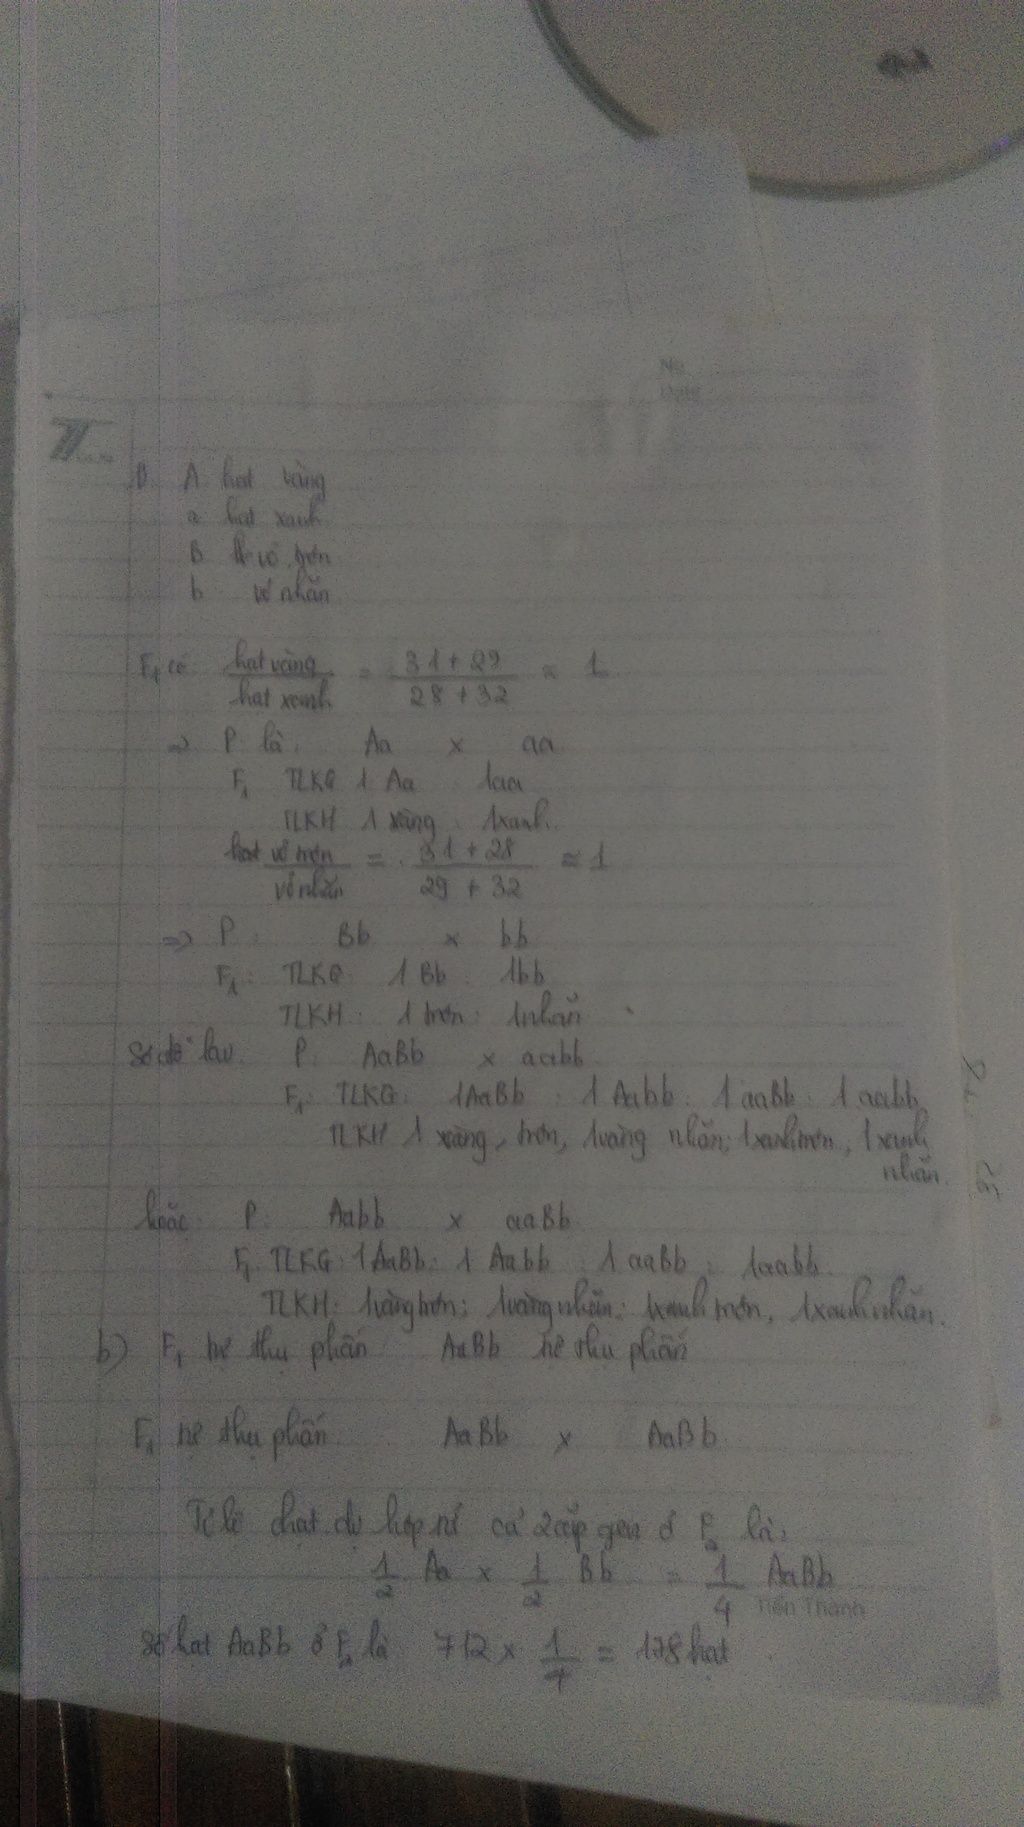 No
Date
A hạt vàng
a hạt xanh
B vỏ trơn
b vỏ nhăn
F1 có hạt vàng / hạt xanh = 31 + 29 / 28 + 32 ≈ 1
=> P là: Aa x aa
F1 TLKG 1 Aa : 1aa
TLKH 1 vàng : 1xanh.
hạt vỏ trơn / vỏ nhăn = 31 + 28 / 29 + 32 ≈ 1
=> P: Bb x bb
F1: TLKG: 1 Bb : 1bb
TLKH: 1 trơn: 1nhăn
Sơ đồ lai P: AaBb x aabb
F1: TLKG: 1AaBb : 1 Aabb : 1 aaBb : 1 aabb
TLKH 1 vàng, trơn, 1vàng nhăn, 1xanh trơn, 1xanh
nhăn.
hoặc: P: Aabb x aaBb
F1 TLKG: 1 AaBb: 1 Aabb : 1 aaBb : 1aabb
TLKH: 1vàng trơn: 1vàng nhăn: 1xanh trơn, 1xanh nhăn.
b) F1 tự thụ phấn AaBb tự thụ phấn
F1 tự thụ phấn AaBb x AaBb
Tỉ lệ hạt dị hợp tử cả 2 cặp gen ở F2 là:
1/2 Aa x 1/2 Bb = 1/4 AaBb
Tiến Thành
Số hạt AaBb ở F2 là 712 x 1/4 = 178 hạt